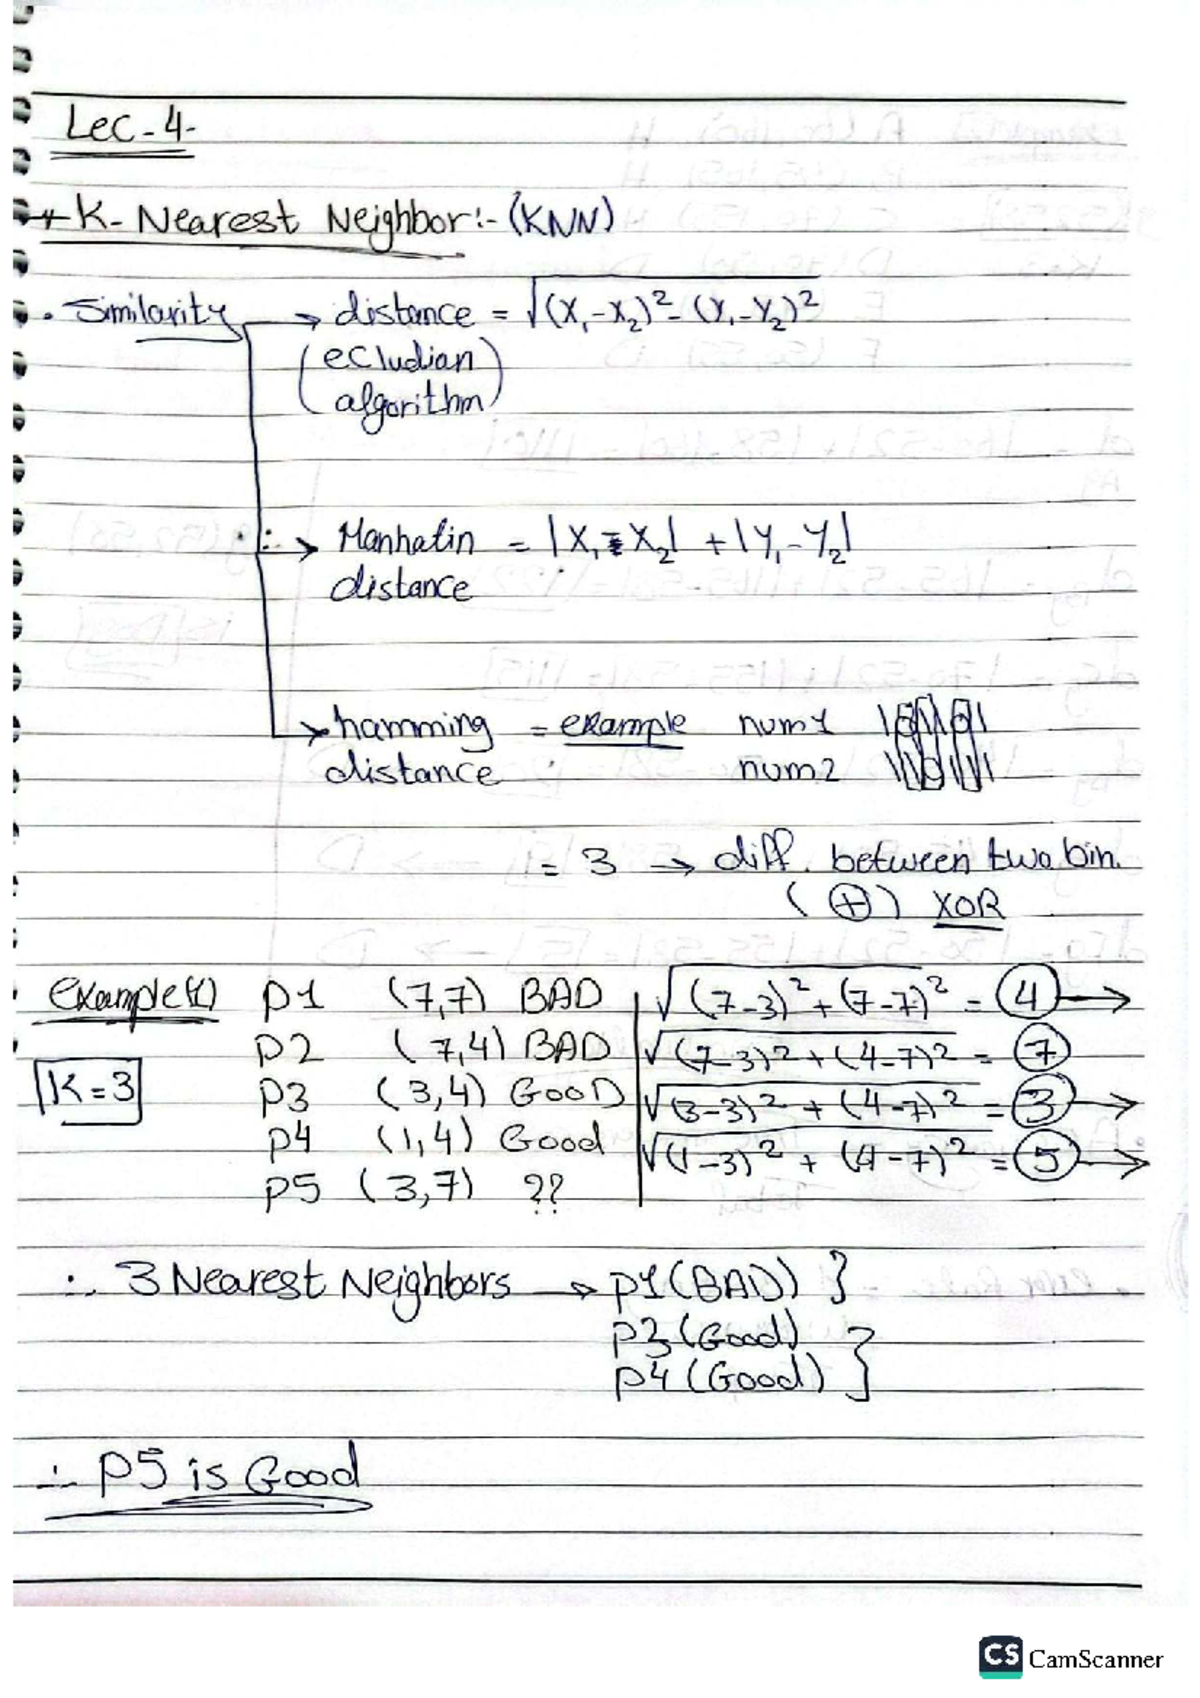 Lec-4-
+ K-Nearest Neighbor:- (KNN)
• Similarity → distance = √(X₁-X₂)² - (Y₁-Y₂)²
(ecludian
algorithm)
∴ → Manhatin = |X₁-X₂| + |Y₁-Y₂|
distance
→ hamming = example num1
distance num2
= 3 → diff. between two bin.
(⊕) XOR
example(1) P1 (7,7) BAD √(7-3)²+(7-7)² = 4 →
P2 (7,4) BAD √(7-3)²+(4-7)² = 7
K=3 P3 (3,4) GooD √(3-3)²+(4-7)² = 3 →
P4 (1,4) Good √(1-3)²+(4-7)² = 5 →
P5 (3,7) ??
∴ 3 Nearest Neighbors → P1 (BAD) }
P3 (Good)
P4 (Good) }
∴ P5 is Good
CS CamScanner